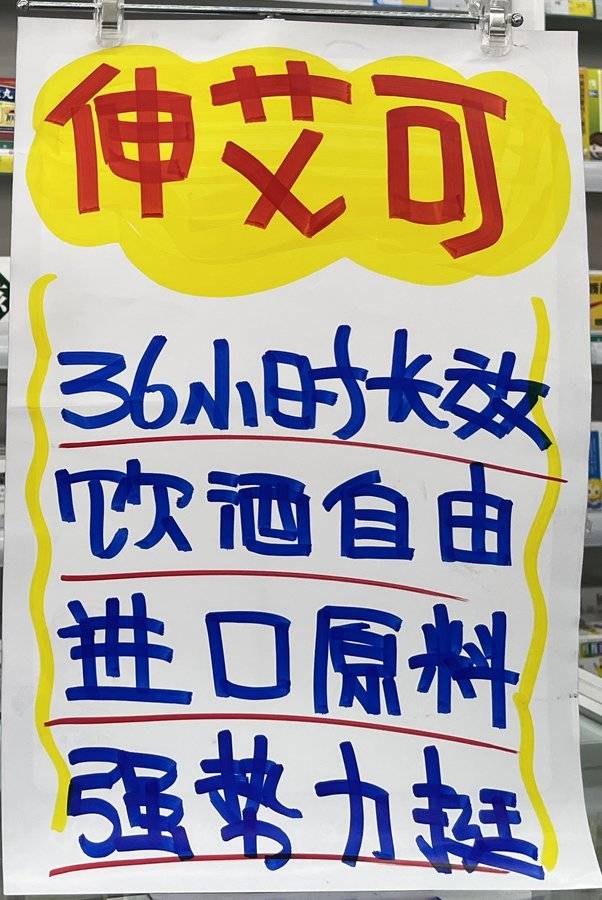 伸艾可
36小时长效
饮酒自由
进口原料
强势力挺